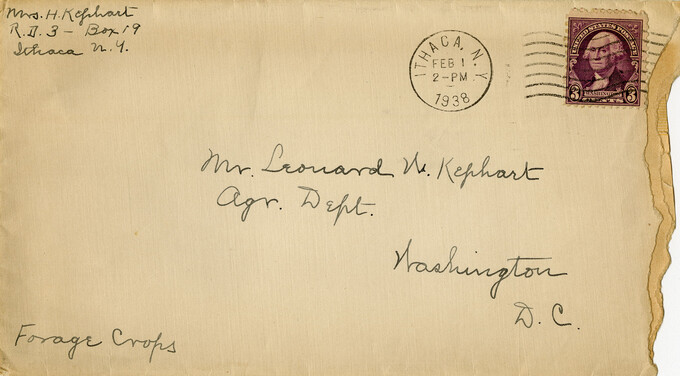 Mrs. H. Kephart
R.D. 3 - Box 19
Ithaca N.Y.
ITHACA, N.Y.
FEB 1
2-PM
1938
UNITED STATES POSTAGE
3 WASHINGTON 3
Mr. Leonard W. Kephart
Agr. Dept.
Washington
D.C.
Forage Crops